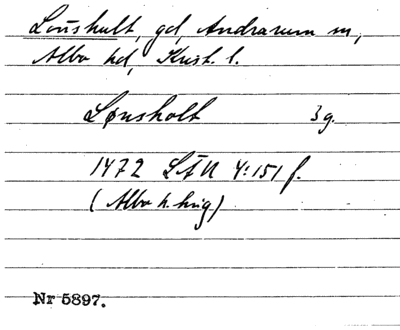 Lönshult, gd, Andrarum sn,
Albo hd, Krist. l.
Lønsholt 3 g.
1472 LÅU 4:151 f.
(Albo h. hrg)
Nr 5897.